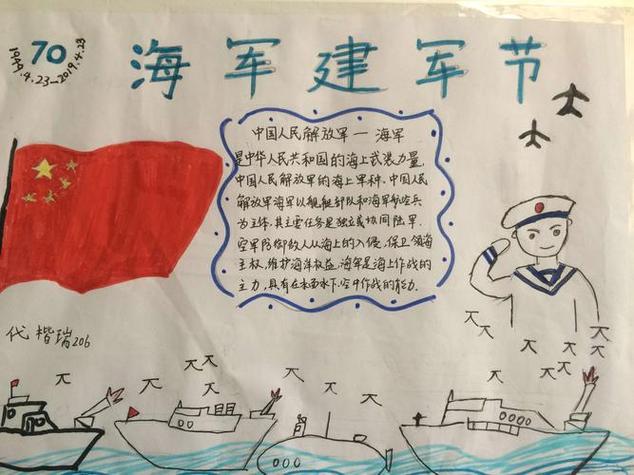 70
1949.4.23-2019.4.23
海军建军节
中国人民解放军—海军
是中华人民共和国的海上武装力量,
中国人民解放军的海上军种,中国人民
解放军海军以舰艇部队和海军航空兵
为主体,其主要任务是独立或协同陆军.
空军防御敌人从海上的入侵,保卫领海
主权,维护海洋权益.海军是海上作战的
主力,具有在水面水下.空中作战的能力.
代楷瑞206